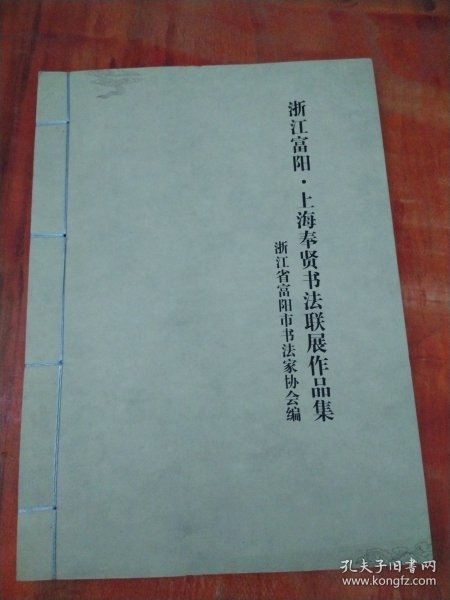 浙江富阳·上海奉贤书法联展作品集
浙江省富阳市书法家协会编
孔夫子旧书网
www.kongfz.com